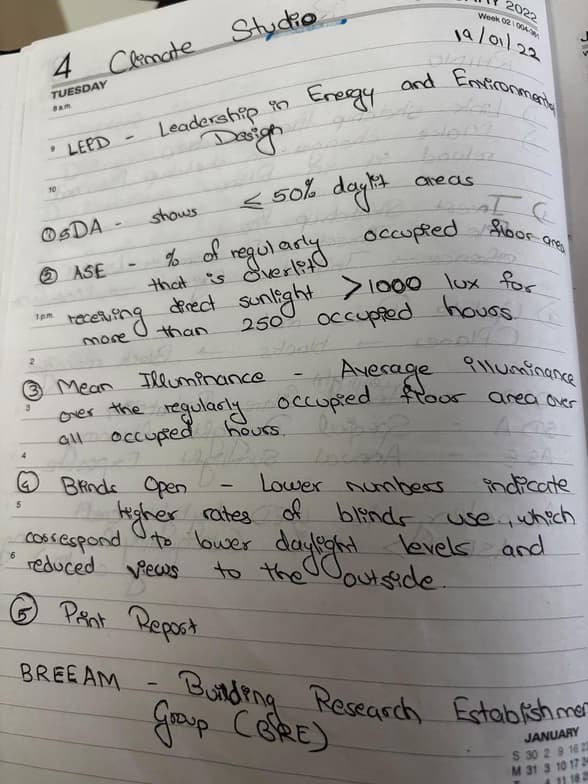 2022
Week 02 | 004-361
4 Climate Studio
19/01/22
TUESDAY
8 a.m.
9 LEED - Leadership in Energy and Environmental
Design
10
① sDA - shows ≤ 50% daylit areas
② ASE - % of regularly occupied floor area
that is overlit
1 p.m. receiving direct sunlight >1000 lux for
more than 250 occupied hours
2
③ Mean Illuminance - Average illuminance
3 over the regularly occupied floor area over
all occupied hours.
4
④ Blinds Open - Lower numbers indicate
5 Higher rates of blinds use, which
correspond to lower daylight levels and
6 reduced views to the outside.
⑤ Print Report
BREEAM - Building Research Establishmen
Group (BRE)
JANUARY
S 30 2 9 16
M 31 3 10 17